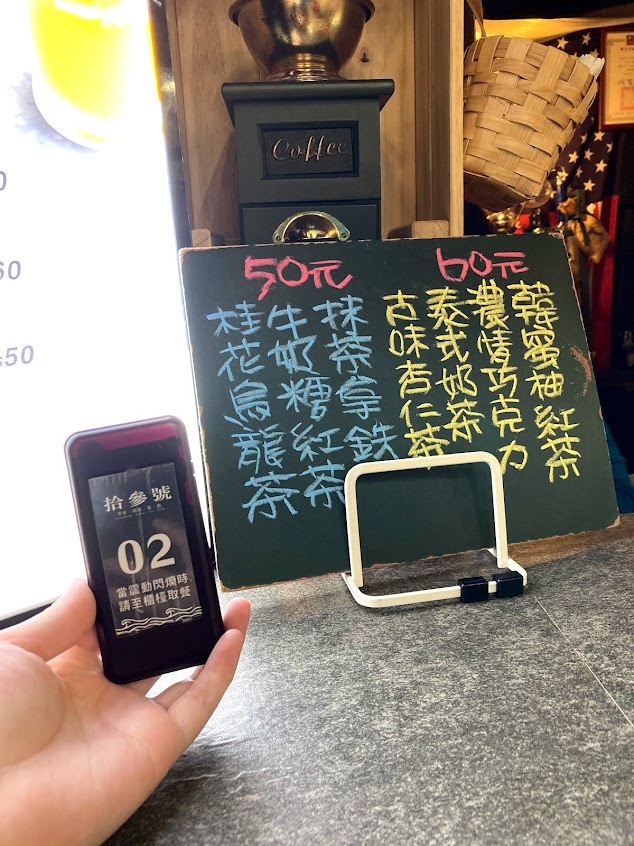 Coffee
60
50
60元
韓蜜柚紅茶
濃情巧克力
泰式奶茶
古味杏仁茶
50元
抹茶拿鉄
牛奶糖紅茶
桂花烏龍茶
拾參號
02
當震動閃爍時
請至櫃檯取餐